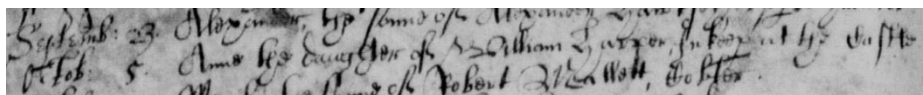 Septemb: 23. Alexander, the sonne of Alexander
Octob: 5. Anne the daughter of William Harper, Inkeep at the Castle
the sonne of Robert Mallett, Cobler.